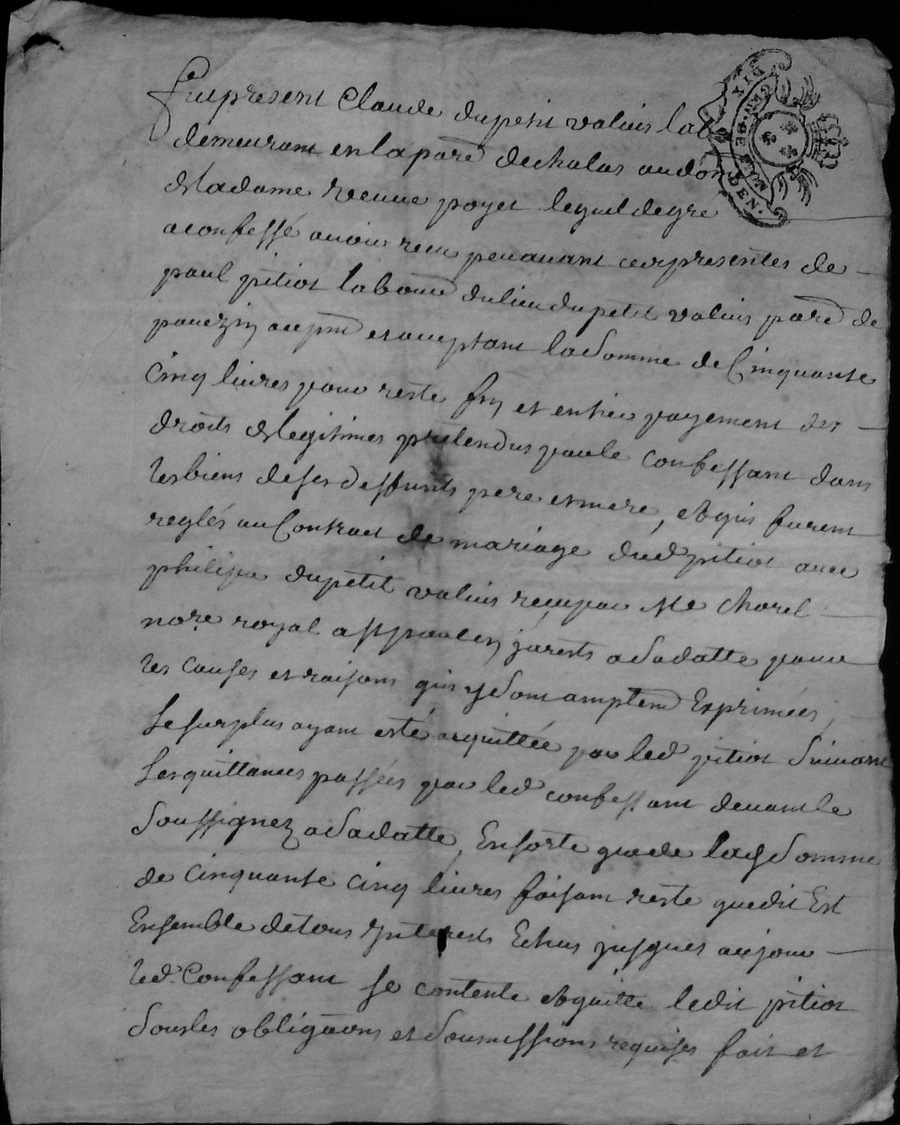 Fut present Claude dupetit valius lab
demeurant en la parr̃e dechalas au dom
de Madame veuve poyet lequel degre
a confessé avoir reçu peravant ces presentes de
paul pitiot laboure dulieu dupetit valius parr̃e de
pavezin au pnt et aceptant la somme de Cinquante
Cinq livres pour reste fin et entier payement des
droits de legitimes pretendus par le confessant dans
les biens de ses deffunts pere et mere, et qui furent
reglés au Contract de mariage dud pitiot avec
philipe dupetit valius reçu par Me Chorel
nore royal a St paul en jarests a sa datte pour
les causes et raisons qui y sont amplem̃ Exprimées,
Le surplus ayant esté acquittée par led pitiot suivant
Les quittances passées par led confessant devant le
soussignez a sa datte, En sorte que de lad somme
de cinquante cinq livres faisant reste que dit Est
Ensemble detous Interests Echus jusques aujour
led Confessant se contente et quitte ledit pitiot
sous les obligãons et soumissions requises fait et
DIX DEN.